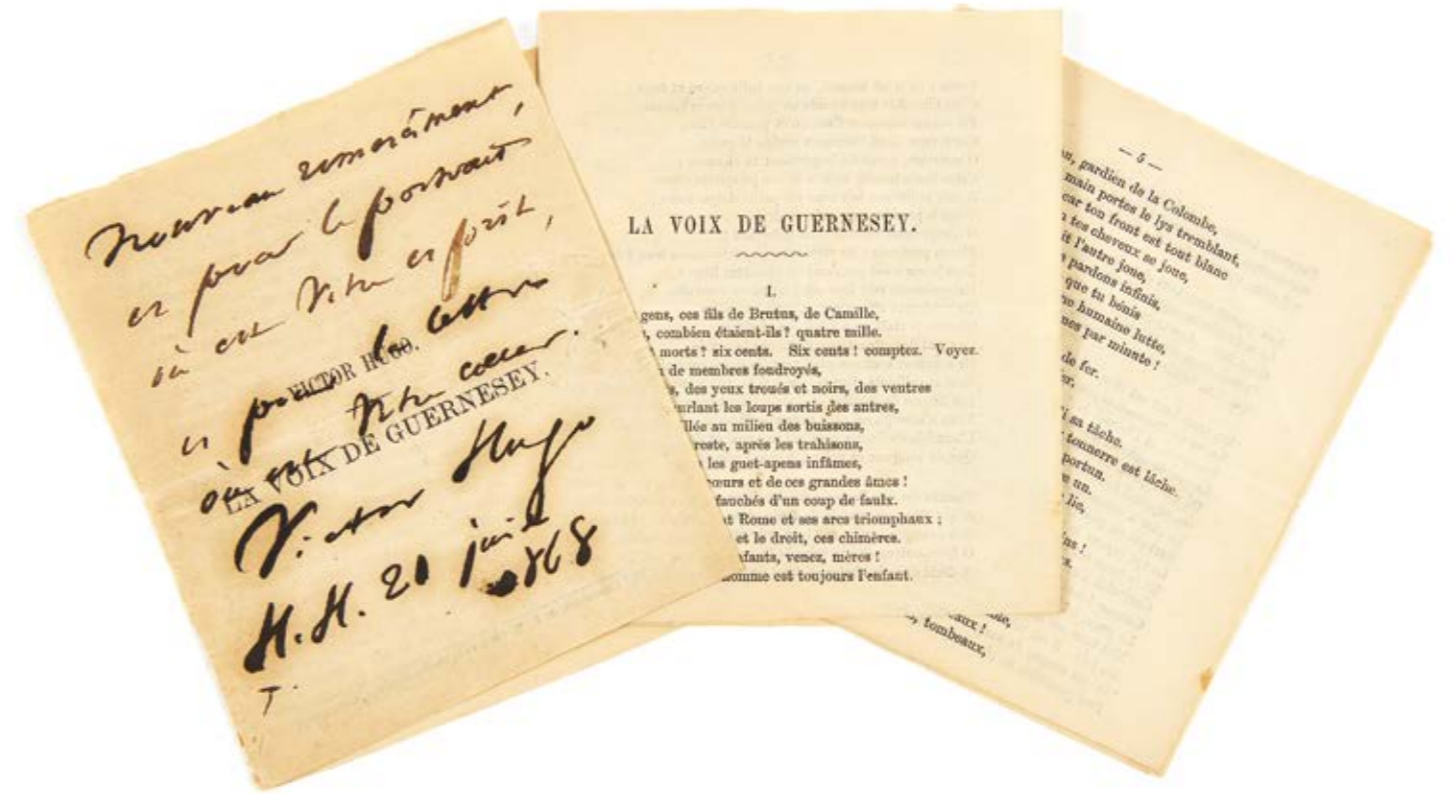 Nouveau remerciment,
et pour le portrait
où est votre esprit,
et pour la lettre
où est votre cœur.
Victor Hugo
H. H. 21 juin 1868
T.
VICTOR HUGO.
LA VOIX DE GUERNESEY.
LA VOIX DE GUERNESEY.
I.
gens, ces fils de Brutus, de Camille,
combien étaient-ils ? quatre mille.
morts ? six cents. Six cents ! comptez. Voyez.
de membres foudroyés,
des yeux troués et noirs, des ventres
les loups sortis des antres,
au milieu des buissons,
reste, après les trahisons,
les guet-apens infâmes,
et de ces grandes âmes !
fauchés d'un coup de faulx.
Rome et ses arcs triomphaux ;
et le droit, ces chimères.
venez, mères !
est toujours l'enfant.
— 5 —
gardien de la Colombe,
main portes le lys tremblant,
car ton front est tout blanc
tes cheveux se joue,
l'autre joue,
pardons infinis,
que tu bénis
humaine lutte,
par minute !
de fer.
sa tâche.
tonnerre est lâche.
un.
lie,
tombeaux,